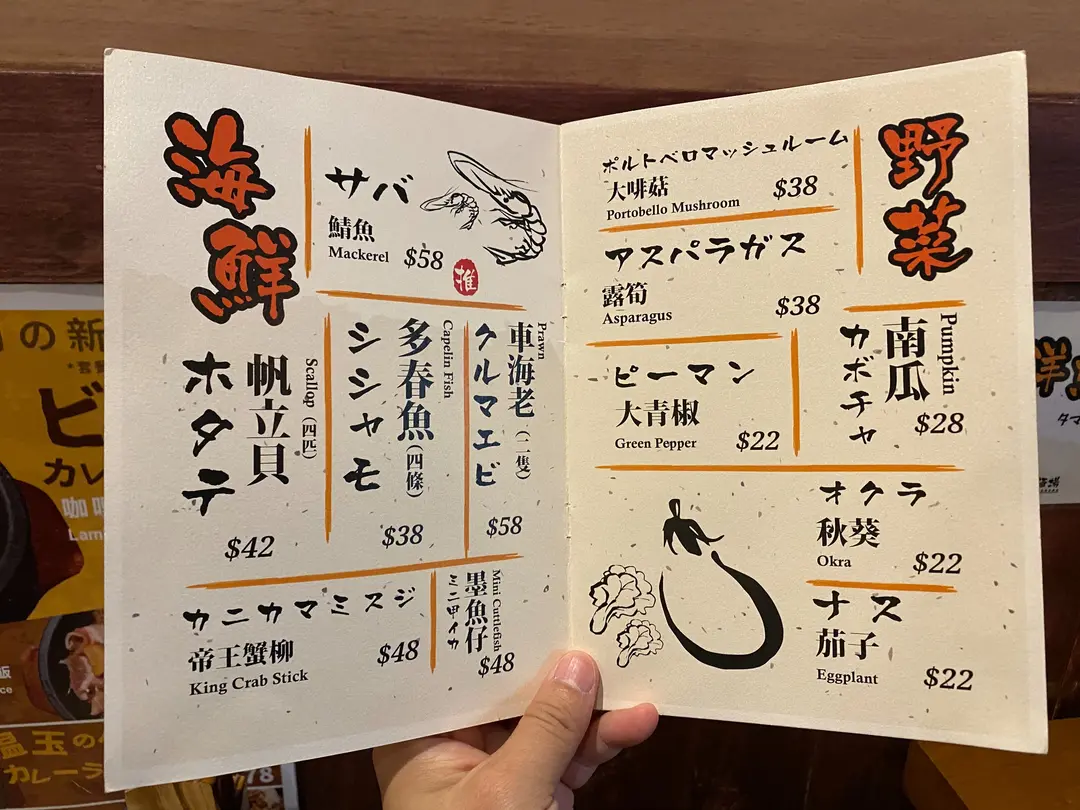 海鮮
サバ
鯖魚
Mackerel $58
推
Prawn
車海老(二隻)
クルマエビ
$58
Capelin Fish
多春魚(四條)
シシャモ
$38
Scallop (四匹)
帆立貝
ホタテ
$42
カニカマミスジ
帝王蟹柳
King Crab Stick
$48
Mini Cuttlefish
墨魚仔
ミニ甲イカ
$48
野菜
ポルトベロマッシュルーム
大啡菇
Portobello Mushroom
$38
アスパラガス
露筍
Asparagus
$38
Pumpkin
南瓜
カボチャ
$28
ピーマン
大青椒
Green Pepper
$22
オクラ
秋葵
Okra
$22
ナス
茄子
Eggplant
$22
の新
ビ
カレ
咖
Lam
飯
温玉の
カレーラ
78